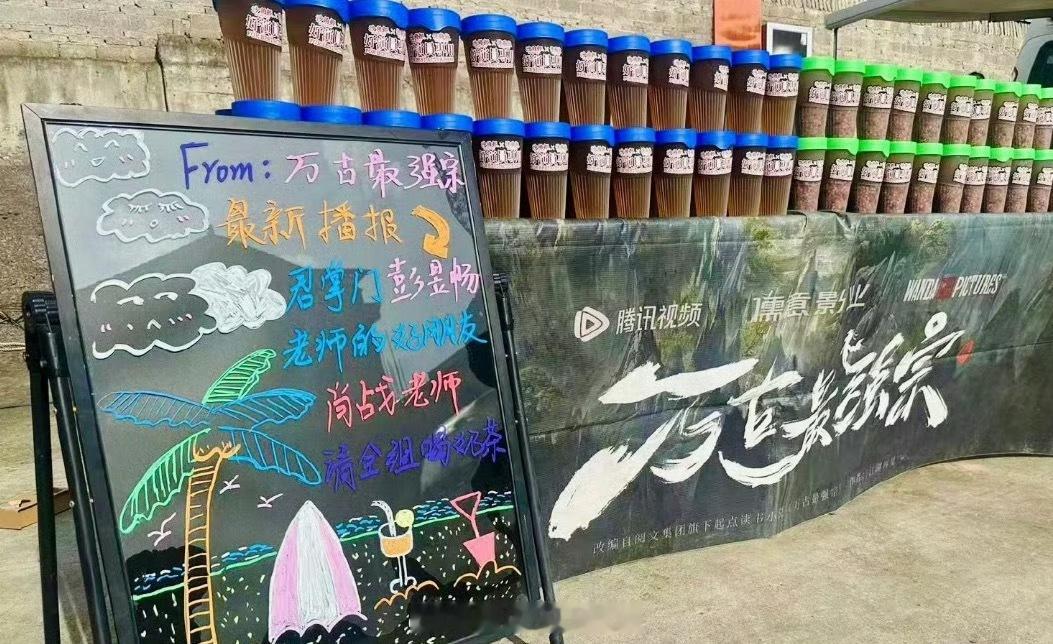 From: 万古最强宗
最新播报
君掌门彭昱畅
老师的好朋友
肖战老师
请全组喝奶茶
腾讯视频
儒意影业
WANDA PICTURES
万古最强宗
改编自阅文集团旗下起点读书小说《万古最强宗》